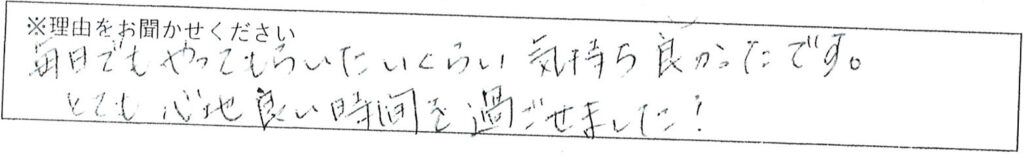 ※理由をお聞かせください
毎日でもやってもらいたいくらい気持ち良かったです。
とても心地良い時間を過ごせました!